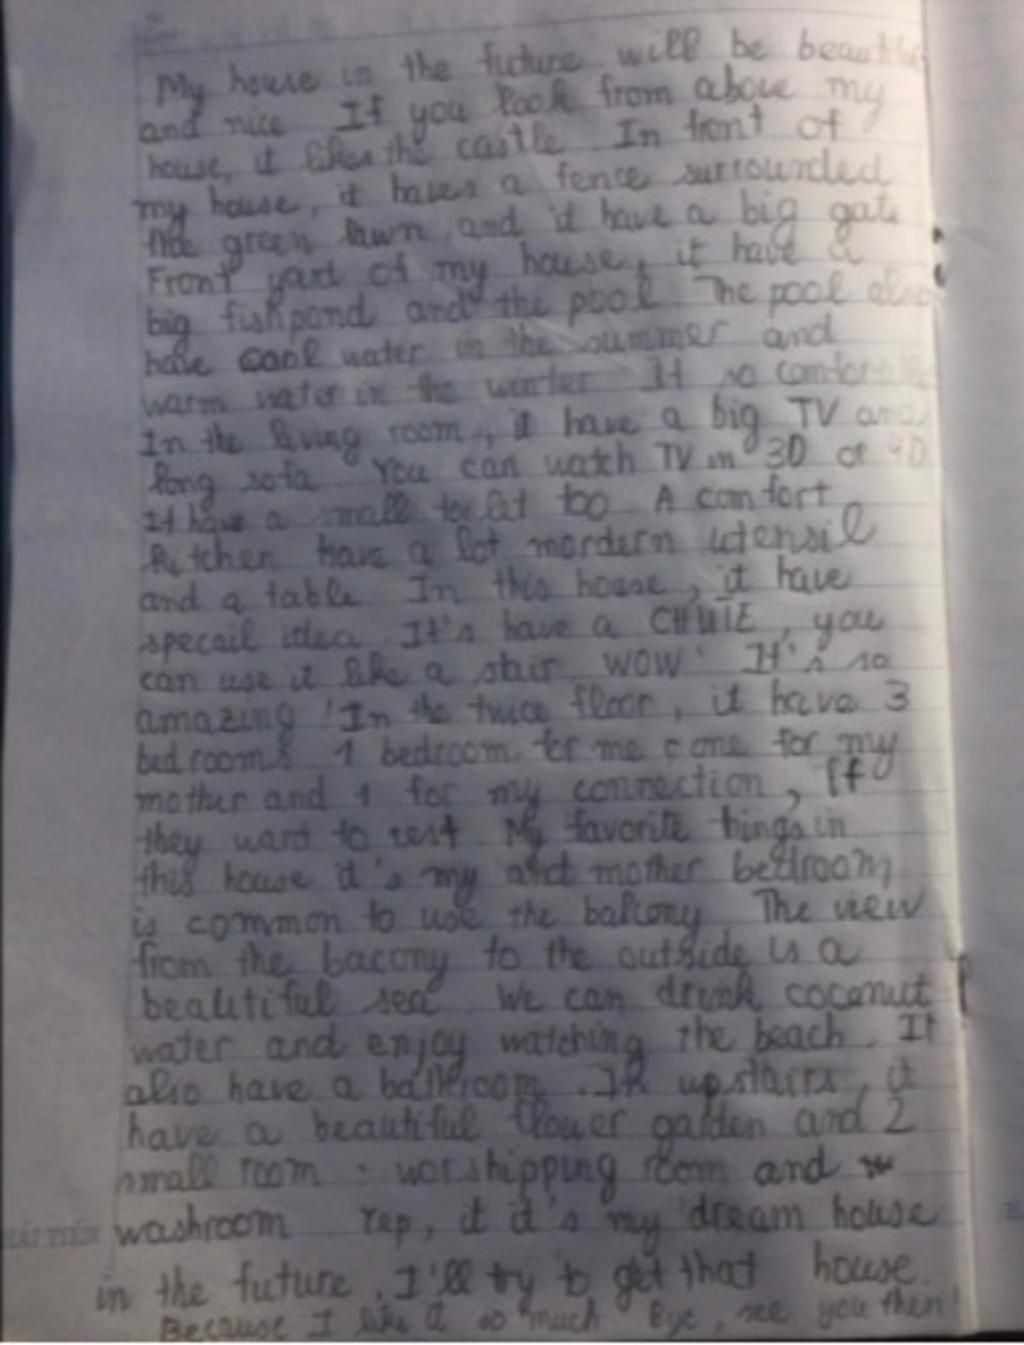 My house in the future will be beautiful
and nice If you look from above my
house, it likes the castle In front of
my house, it haves a fence surrounded
the green lawn and it have a big gate
Front yard of my house, it have a
big fishpond and the pool The pool also
have cool water in the summer and
warm water in the winter It so comfortable
In the living room, it have a big TV and
long sofa You can watch TV in 3D or 4D
It have a small toilet too A comfort
kitchen have a lot mordern utensil
and a table In this house, it have
specail idea It's have a CHUTE, you
can use it like a stair WOW! It's so
amazing! In the twice floor, it have 3
bedrooms 1 bedroom for me, one for my
mother and 1 for my connection, If
they want to rest My favorite things in
this house it's my and mother bedroom
is common to use the balcony The view
from the bacony to the outside is a
beautiful sea We can drink coconut
water and enjoy watching the beach. It
also have a bathroom. In upstairs, it
have a beautiful flower garden and 2
small room: worshipping room and
washroom Yep, it it's my dream house
in the future. I'll try to get that house.
Because I like it so much Bye, see you then!
HẢI TIẾN